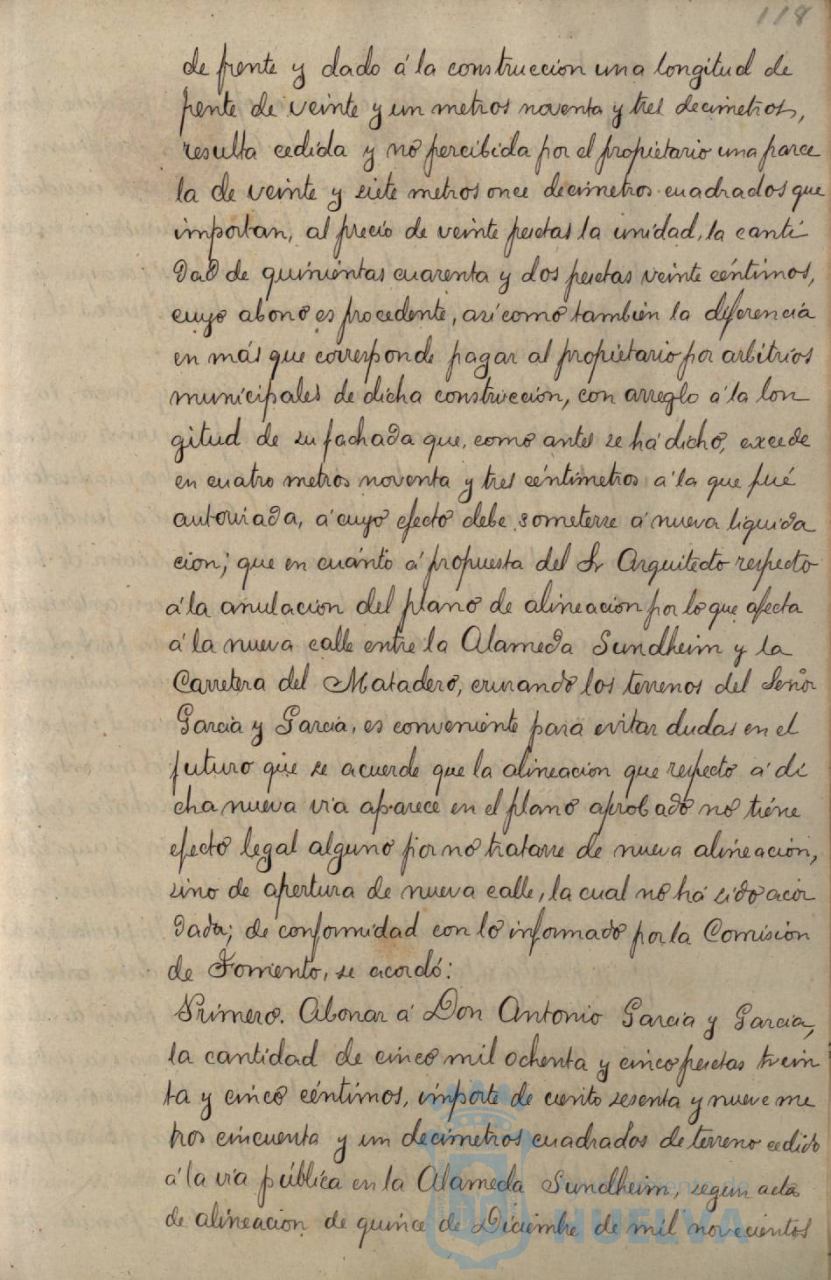 118
de frente y dado á la construccion una longitud de
frente de veinte y un metros noventa y tres decimetros,
resulta cedida y no percibida por el propietario una parce
la de veinte y siete metros once decimetros cuadrados que
importan, al precio de veinte pesetas la unidad, la canti
dad de quinientas cuarenta y dos pesetas veinte céntimos,
cuyo abono es procedente, así como también la diferencia
en más que corresponde pagar al propietario por arbitrios
municipales de dicha construccion, con arreglo á la lon
gitud de su fachada que, como antes se há dicho, excede
en cuatro metros noventa y tres céntimetros á la que fué
autorizada, á cuyo efecto debe someterse á nueva liquida
cion; que en cuánto á propuesta del Sr Arquitecto respecto
á la anulacion del plano de alineacion por lo que afecta
á la nueva calle entre la Alameda Sundheim y la
Carretera del Matadero, cruzando los terrenos del Señor
García y García, es conveniente para evitar dudas en el
futuro que se acuerde que la alineacion que respecto á di
cha nueva via aparece en el plano aprobado no tiene
efecto legal alguno por no tratarse de nueva alineación,
sino de apertura de nueva calle, la cual no há sido acor
dada; de conformidad con lo informado por la Comisión
de Fomento, se acordó:
Primero. Abonar á Don Antonio García y García,
la cantidad de cinco mil ochenta y cinco pesetas trein
ta y cinco céntimos, importe de ciento sesenta y nueve me
tros cincuenta y un decímetros cuadrados de terreno cedido
á la vía pública en la Alameda Sundheim, segun acta
de alineacion de quince de Diciembre de mil novecientos
HUELVA